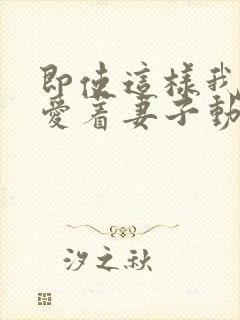 即使這樣我
愛着妻子動
汐之秋